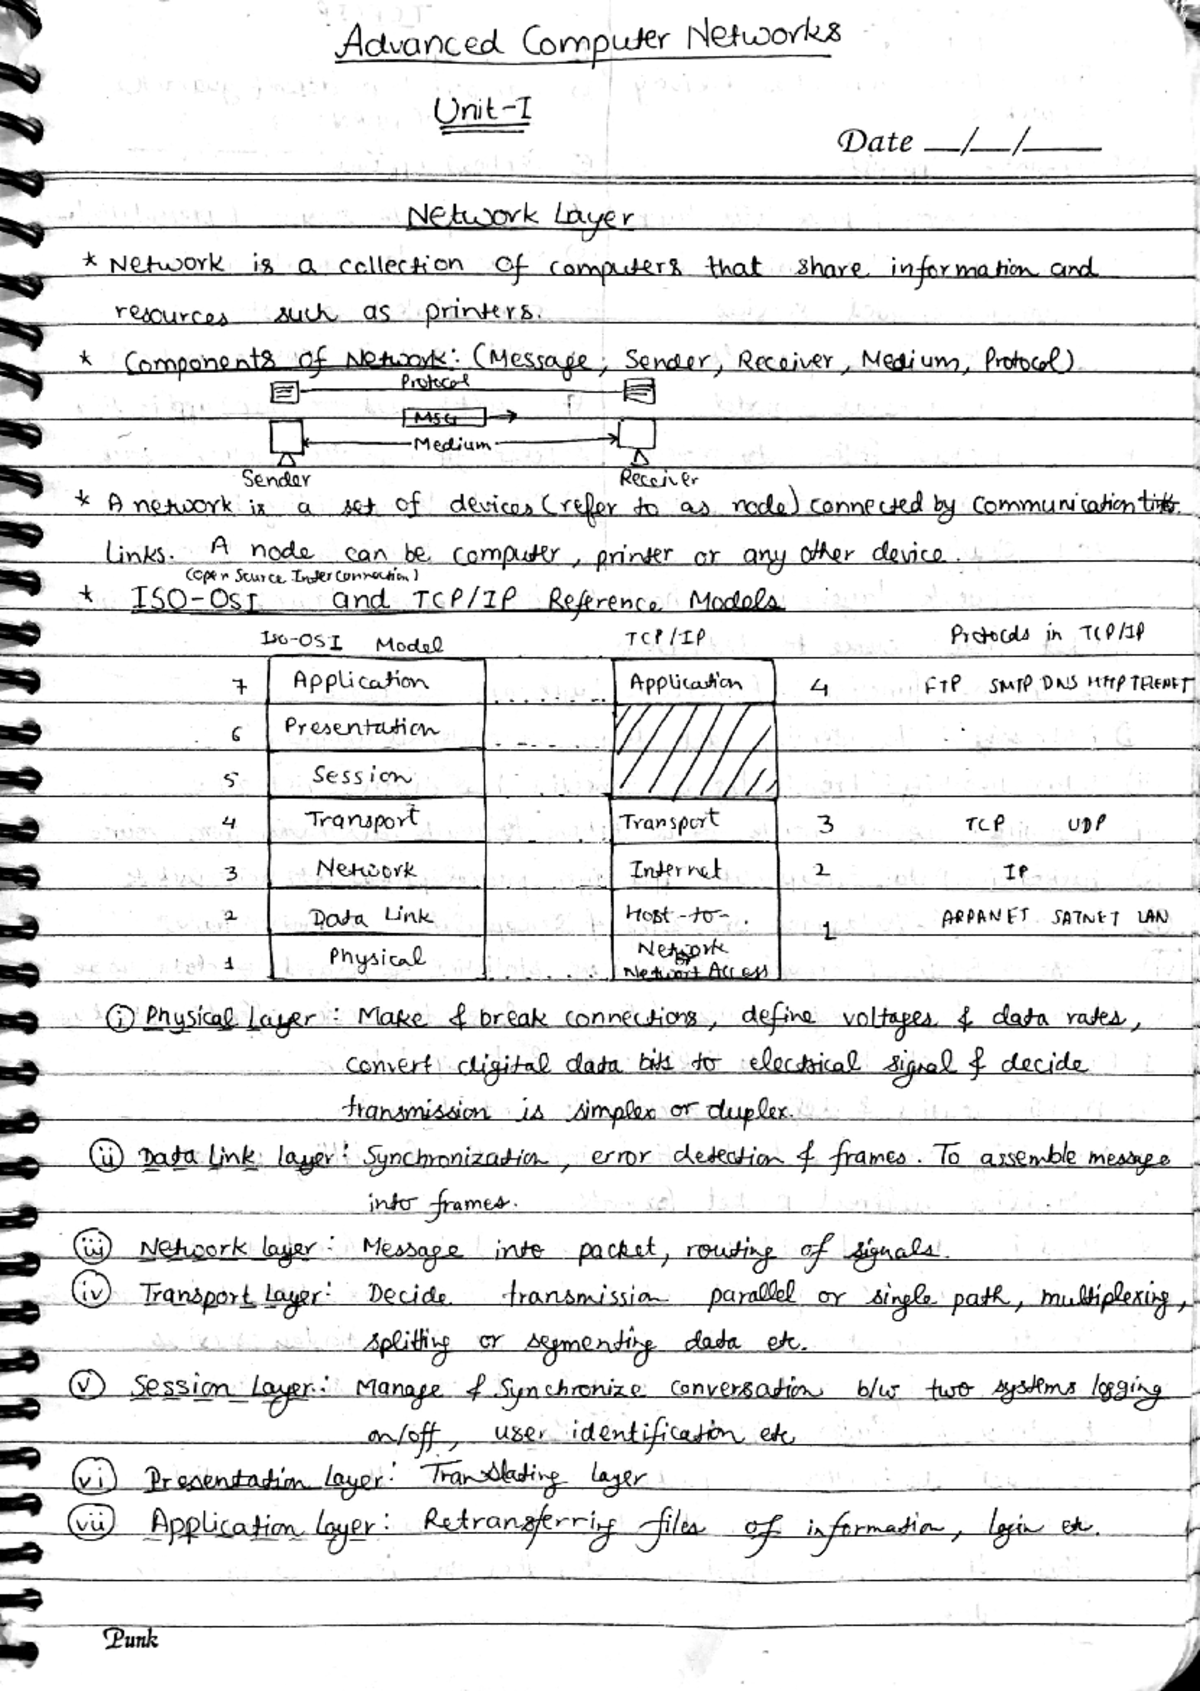 Advanced Computer Networks
Unit-I
Date __/__/____
Network Layer
* Network is a collection of computers that share information and
resources such as printers.
* Components of Network: (Message, Sender, Receiver, Medium, Protocol)
Protocol
MSG
Medium
Sender Receiver
* A network is a set of devices (refer to as node) connected by communication
links. A node can be computer, printer or any other device.
(Open Source Interconnection)
* ISO-OSI and TCP/IP Reference Models
Iso-OSI Model TCP/IP Protocols in TCP/IP
7 Application Application 4 FTP SMTP DNS HTTP TELENET
6 Presentation
5 Session
4 Transport Transport 3 TCP UDP
3 Network Internet 2 IP
2 Data Link Host-to- 1 ARPANET SATNET LAN
1 Physical Network
or
Network Access
(i) Physical Layer: Make & break connections, define voltages & data rates,
convert digital data bits to electrical signal & decide
transmission is simplex or duplex.
(ii) Data Link layer: Synchronization, error detection & frames. To assemble message
into frames.
(iii) Network layer: Message into packet, routing of signals.
(iv) Transport Layer: Decide transmission parallel or single path, multiplexing,
splitting or segmenting data etc.
(v) Session Layer: Manage & Synchronize conversation b/w two systems logging
on/off, user identification etc
(vi) Presentation Layer: Translating layer
(vii) Application Layer: Retransferring files of information, login etc.
Punk